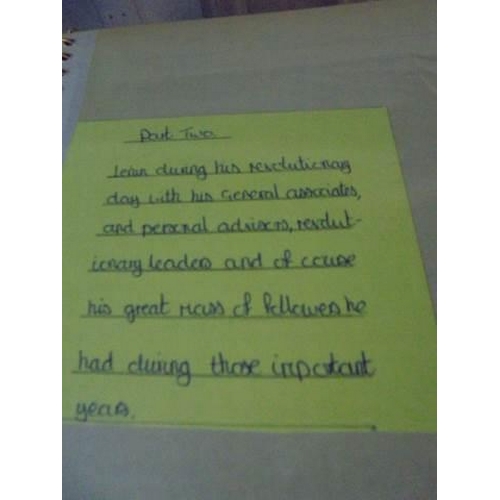 Part Two
during his revolutionary
day with his General associates,
and personal advisors, revolut-
ionary leaders and of course
his great mass of followers he
had during those important
years.